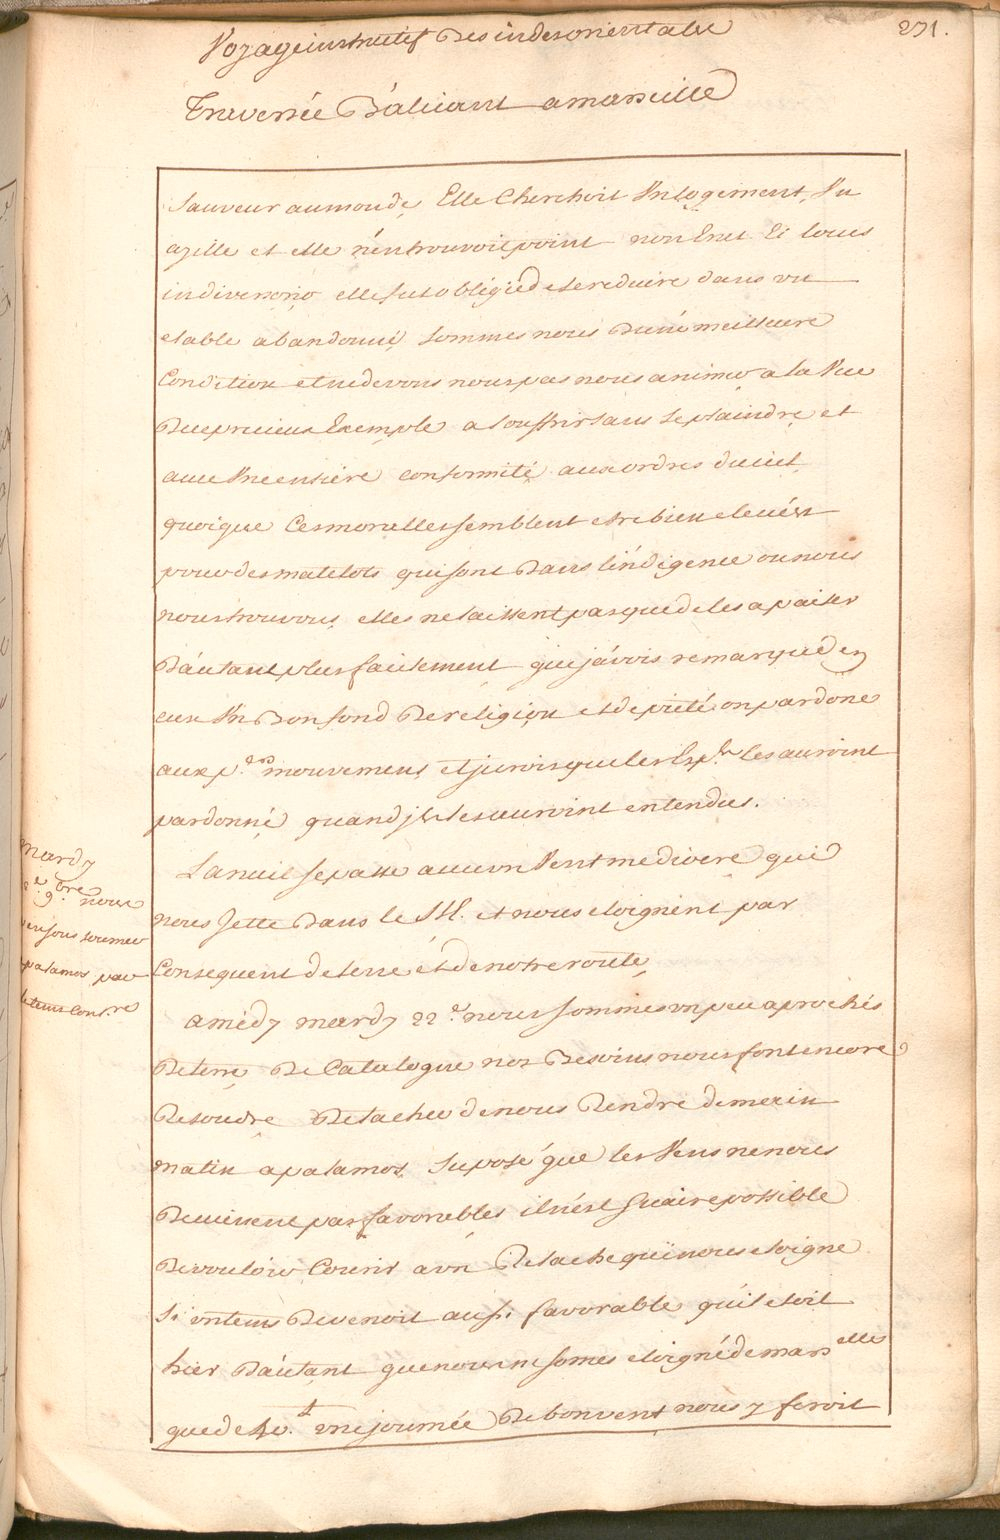 Voyage instructif Des indes orientales
271.
Traversée D'alicant a marseille
Sauveur au monde, Elle Cherchoit Un logement, Un
azille et elle n'en trouvoit point non Erat Ei locus
in diversorio elle fut obligéé de se reduire dans un
etable abandonné, sommes nous D'une meilleure
Condition et ne devons nous pas nous animer a la Vue
De ce precieux Exemple a souffrir sans se plaindre, et
avec Une entiere conformité aux ordres du ciel,
quoique Ces moralles semblent etre bien elevéés
pour des matelots qui sont Dans l'indigence ou nous
nous trouvons, elles ne laissent pas que de les apaiser
D'autant plus facilement que j'avois remarqué en
eux Un Bon fond De religion et de pieté, on pardone
aux p.ers mouvemens et je crois que les les auroint
pardonné quand ils les auroint entendus.
La nuit se passe avec un Vent mediocre qui
nous Jette Dans le SE. et nous eloignent par
Consequent de terre et de notre route,
a médy mardy 22.e nous sommes un peu aprochés
De terre De Catalogne nos Besoins nous font encore
Resoudre De tacher de nous Rendre demain
matin a palamos, suposé que les Vens ne nous
Devinssent pas favorables il n'est guaire possible
De vouloir Courir a un Relache qui nous eloigne
Si un tems Devenoit aussi favorable qu'il etoit
hier D'autant que nous ne somes eloigné de marselles
que de 40.t une journée De bon vent nous y feroit
mardy
9.bre nous
palamos par
le tems contre